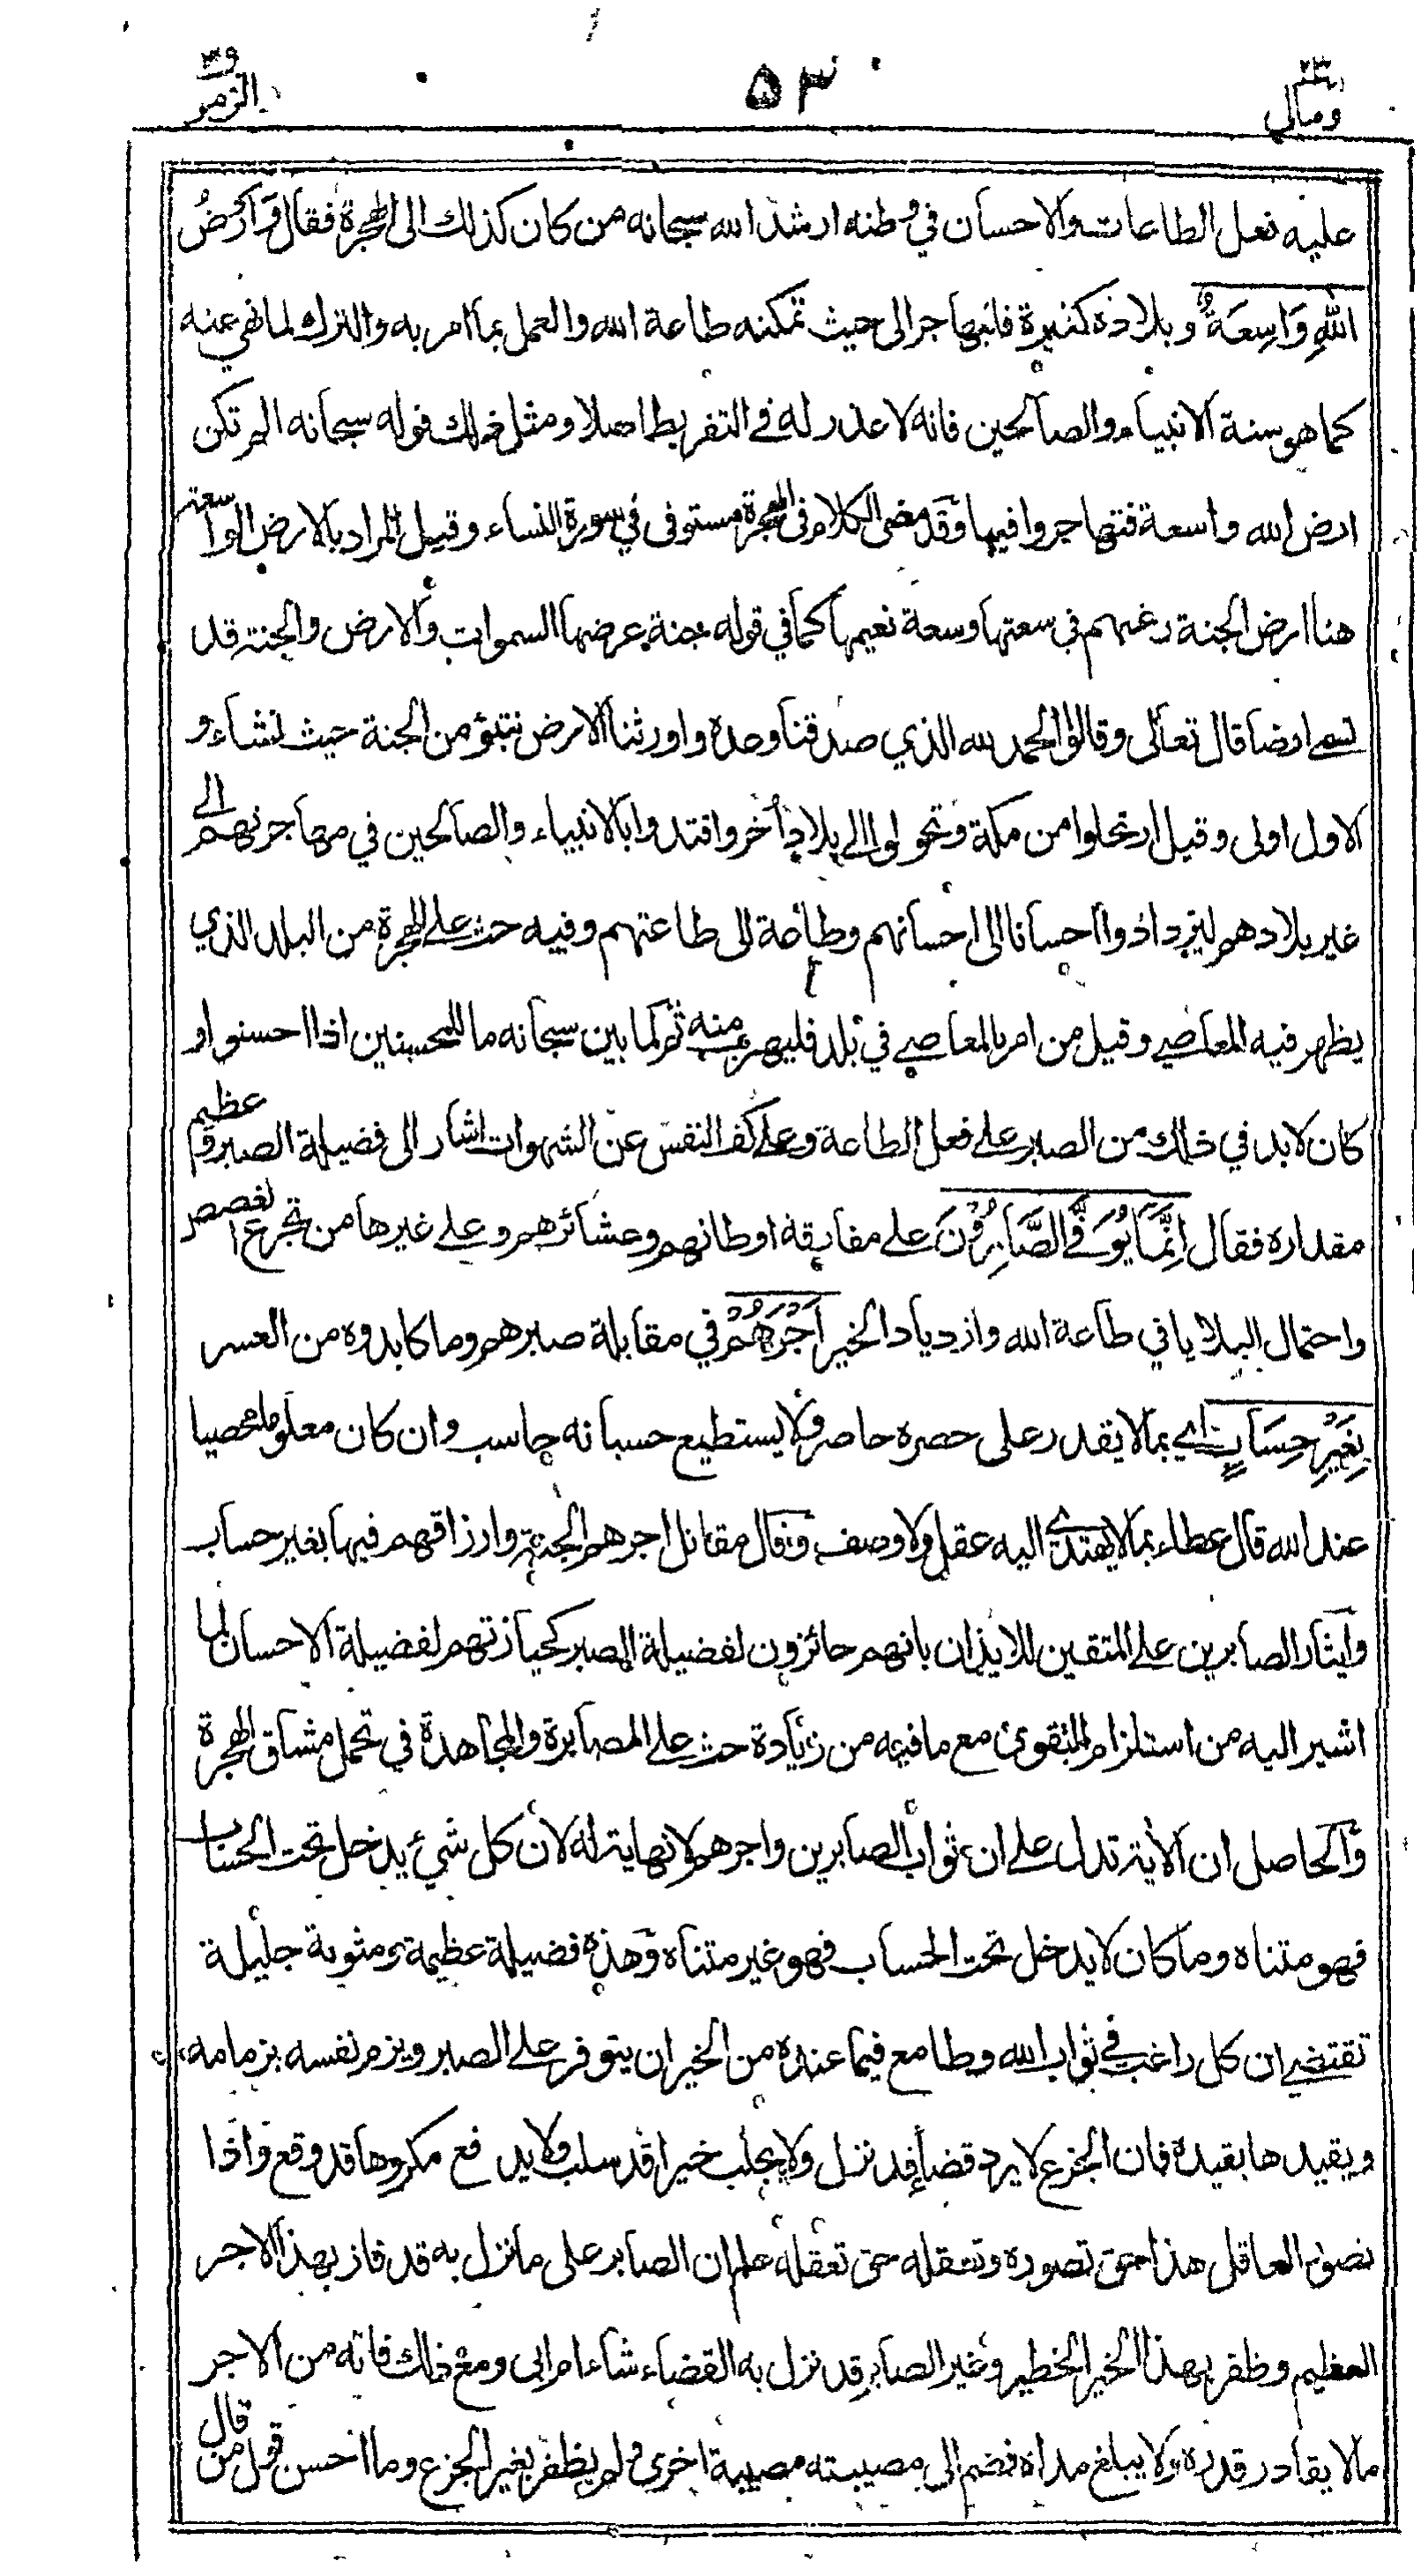 ومالي ٢٣
٥٣
الزمر ٣٩
عليه فعل الطاعات والاحسان في وطنه ارشد الله سبحانه من كان كذلك الى الهجرة فقال وَاَرْضُ
اللهِ وَاسِعَةٌ وبلاده كثيرة فليهاجر الى حيث تمكنه طاعة الله والعمل بما امر به والترك لما نهى عنه
كما هو سنة الانبياء والصالحين فانه لا عذر له في التفريط اصلا ومثل ذلك قوله سبحانه الم تكن
ارض الله واسعة فتهاجروا فيها وقد مضى الكلام في الهجرة مستوفى في سورة النساء وقيل المراد بالارض الواسعة
هنا ارض الجنة رغبهم في سعتها وسعة نعيمها كما في قوله جنة عرضها السموات والارض والجنة قد
تسمى ارضا قال تعالى وقالوا الحمد لله الذي صدقنا وعده واورثنا الارض نتبؤ من الجنة حيث نشاء و
الاول اولى وقيل ارتحلوا من مكة وتحولوا الى بلاد أخر واقتدوا بالانبياء والصالحين في مهاجرتهم الى
غير بلادهم ليزدادوا احسانا الى احسانهم وطاعة الى طاعتهم وفيه حث على الهجرة من البلد الذي
يظهر فيه المعاصي وقيل من امر بالمعاصي في بلد فليهرب منه ثم لما بين سبحانه ما للمحسنين اذا احسنوا و
كان لا بد في ذلك من الصبر على فعل الطاعة وعلى كف النفس عن الشهوات اشار الى فضيلة الصبر وعظيم
مقداره فقال اِنَّمَا يُوَفَّى الصَّابِرُوْنَ على مفارقة اوطانهم وعشائرهم وعلى غيرها من تجرع الغصص
واحتمال البلايا في طاعة الله وازدياد الخير اَجْرَهُمْ في مقابلة صبرهم وما كابدوه من العسر
بِغَيْرِ حِسَابٍ اي بما لا يقدر على حصره حاصر ولا يستطيع حسبانه حاسب وان كان معلوما محصيا
عند الله قال عطاء بما لا يهتدي اليه عقل ولا وصف وقال مقاتل اجرهم الجنة وارزاقهم فيها بغير حساب
وايثار الصابرين على المتقين للايذان بانهم حائزون لفضيلة الصبر كحيازتهم لفضيلة الاحسان لما
اشير اليه من استلزام التقوى مع ما فيه من زيادة حث على المصابرة والمجاهدة في تحمل مشاق الهجرة
والحاصل ان الأية تدل على ان ثواب الصابرين واجرهم لا نهاية له لأن كل شيء يدخل تحت الحساب
فهو متناه وما كان لا يدخل تحت الحساب فهو غير متناه وهذه فضيلة عظيمة ومثوبة جليلة
تقتضي ان كل راغب في ثواب الله وطامع فيما عنده من الخير ان يتوفر على الصبر ويزم نفسه بزمامه
ويقيدها بقيده فان الجزع لا يرد قضاء قد نزل ولا يجلب خيرا قد سلب ولا يدفع مكروها قد وقع واذا
تصور العاقل هذا حق تصوره وتعقله حق تعقله علم ان الصابر على ما نزل به قد فاز بهذا الاجر
العظيم وظفر بهذا الخير الخطير وغير الصابر قد نزل به القضاء شاء ام ابى ومع ذلك فاته من الاجر
ما لا يقادر قدره ولا يبلغ مداه فضم الى مصيبته مصيبة اخرى ولم يظفر بغير الجزع وما احسن قول من قال